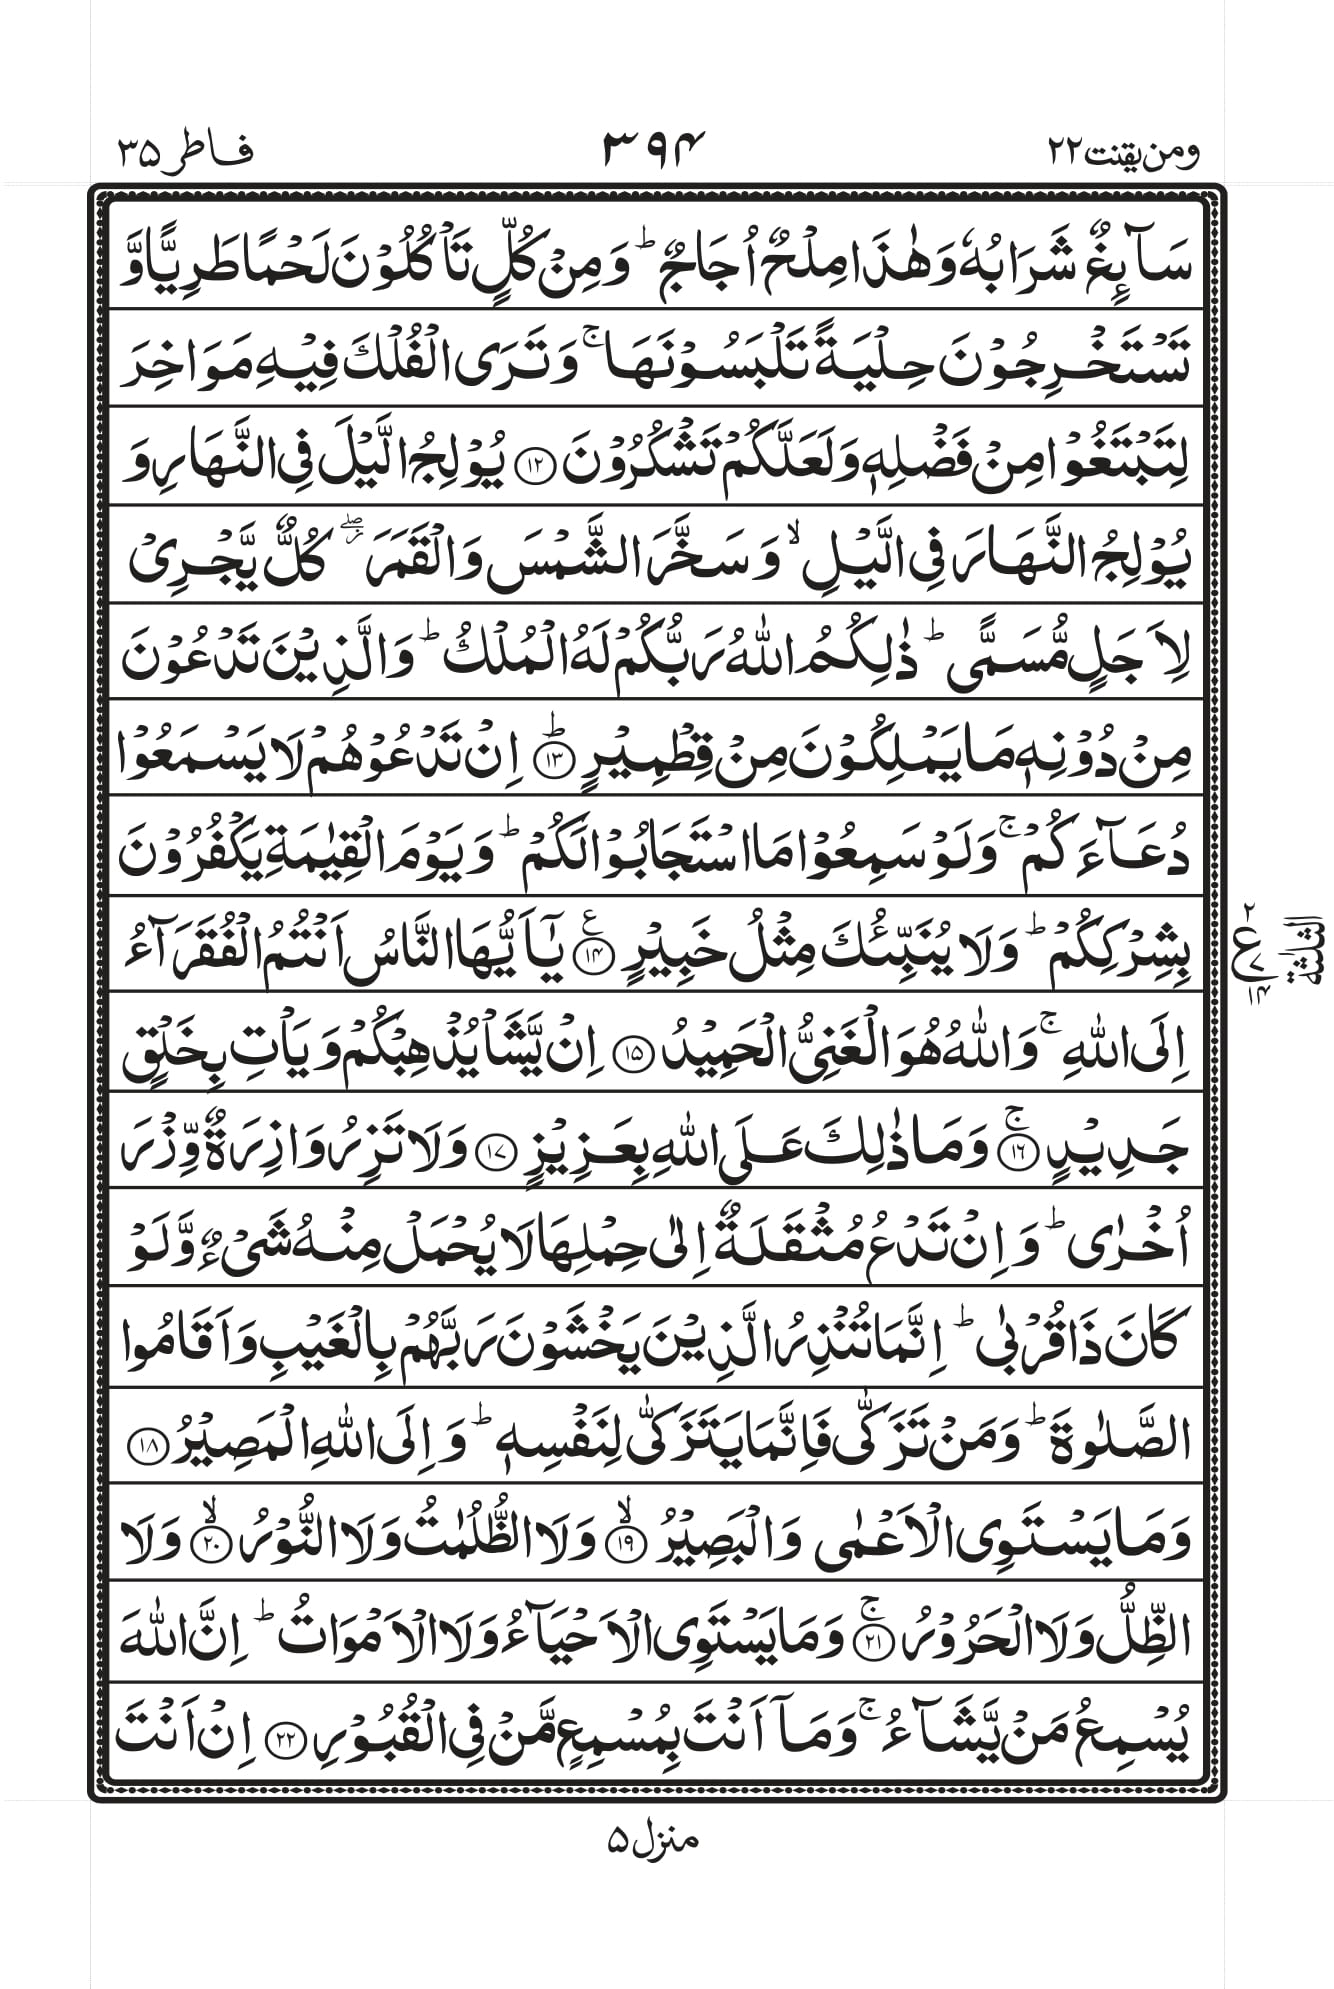 ومن یقنت ۲۲
۳۹۴
فاطر ۳۵
سَآئِغٌ شَرَابُهٗ وَهٰذَا مِلْحٌ اُجَاجٌ ؕ وَمِنْ كُلٍّ تَاْكُلُوْنَ لَحْمًا طَرِیًّا وَّ
تَسْتَخْرِجُوْنَ حِلْیَةً تَلْبَسُوْنَهَا ۚ وَتَرَی الْفُلْكَ فِیْهِ مَوَاخِرَ
لِتَبْتَغُوْا مِنْ فَضْلِهٖ وَلَعَلَّكُمْ تَشْكُرُوْنَ ۝۱۲ یُوْلِجُ الَّیْلَ فِی النَّهَارِ وَ
یُوْلِجُ النَّهَارَ فِی الَّیْلِ ۙ وَسَخَّرَ الشَّمْسَ وَالْقَمَرَ ۖؗ كُلٌّ یَّجْرِیْ
لِاَجَلٍ مُّسَمًّی ؕ ذٰلِكُمُ اللّٰهُ رَبُّكُمْ لَهُ الْمُلْكُ ؕ وَالَّذِیْنَ تَدْعُوْنَ
مِنْ دُوْنِهٖ مَا یَمْلِكُوْنَ مِنْ قِطْمِیْرٍ ؕ۝۱۳ اِنْ تَدْعُوْهُمْ لَا یَسْمَعُوْا
دُعَآءَكُمْ ۚ وَلَوْ سَمِعُوْا مَا اسْتَجَابُوْا لَكُمْ ؕ وَیَوْمَ الْقِیٰمَةِ یَكْفُرُوْنَ
بِشِرْكِكُمْ ؕ وَلَا یُنَبِّئُكَ مِثْلُ خَبِیْرٍ ۝۱۴ ع یٰۤاَیُّهَا النَّاسُ اَنْتُمُ الْفُقَرَآءُ
اِلَی اللّٰهِ ۚ وَاللّٰهُ هُوَ الْغَنِیُّ الْحَمِیْدُ ۝۱۵ اِنْ یَّشَاْ یُذْهِبْكُمْ وَیَاْتِ بِخَلْقٍ
جَدِیْدٍ ۚ۝۱۶ وَمَا ذٰلِكَ عَلَی اللّٰهِ بِعَزِیْزٍ ۝۱۷ وَلَا تَزِرُ وَازِرَةٌ وِّزْرَ
اُخْرٰی ؕ وَاِنْ تَدْعُ مُثْقَلَةٌ اِلٰی حِمْلِهَا لَا یُحْمَلْ مِنْهُ شَیْءٌ وَّلَوْ
كَانَ ذَا قُرْبٰی ؕ اِنَّمَا تُنْذِرُ الَّذِیْنَ یَخْشَوْنَ رَبَّهُمْ بِالْغَیْبِ وَاَقَامُوا
الصَّلٰوةَ ؕ وَمَنْ تَزَكّٰی فَاِنَّمَا یَتَزَكّٰی لِنَفْسِهٖ ؕ وَاِلَی اللّٰهِ الْمَصِیْرُ ۝۱۸
وَمَا یَسْتَوِی الْاَعْمٰی وَالْبَصِیْرُ ۙ۝۱۹ وَلَا الظُّلُمٰتُ وَلَا النُّوْرُ ۙ۝۲۰ وَلَا
الظِّلُّ وَلَا الْحَرُوْرُ ۚ۝۲۱ وَمَا یَسْتَوِی الْاَحْیَآءُ وَلَا الْاَمْوَاتُ ؕ اِنَّ اللّٰهَ
یُسْمِعُ مَنْ یَّشَآءُ ۚ وَمَاۤ اَنْتَ بِمُسْمِعٍ مَّنْ فِی الْقُبُوْرِ ۝۲۲ اِنْ اَنْتَ
۲
ع
۷
۱۴
الثلثة
منزل ۵